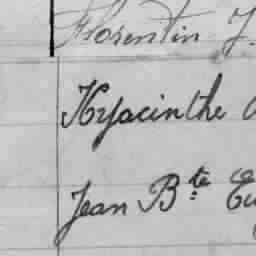 Florentin J.
Hyacinthe
Jean Bte